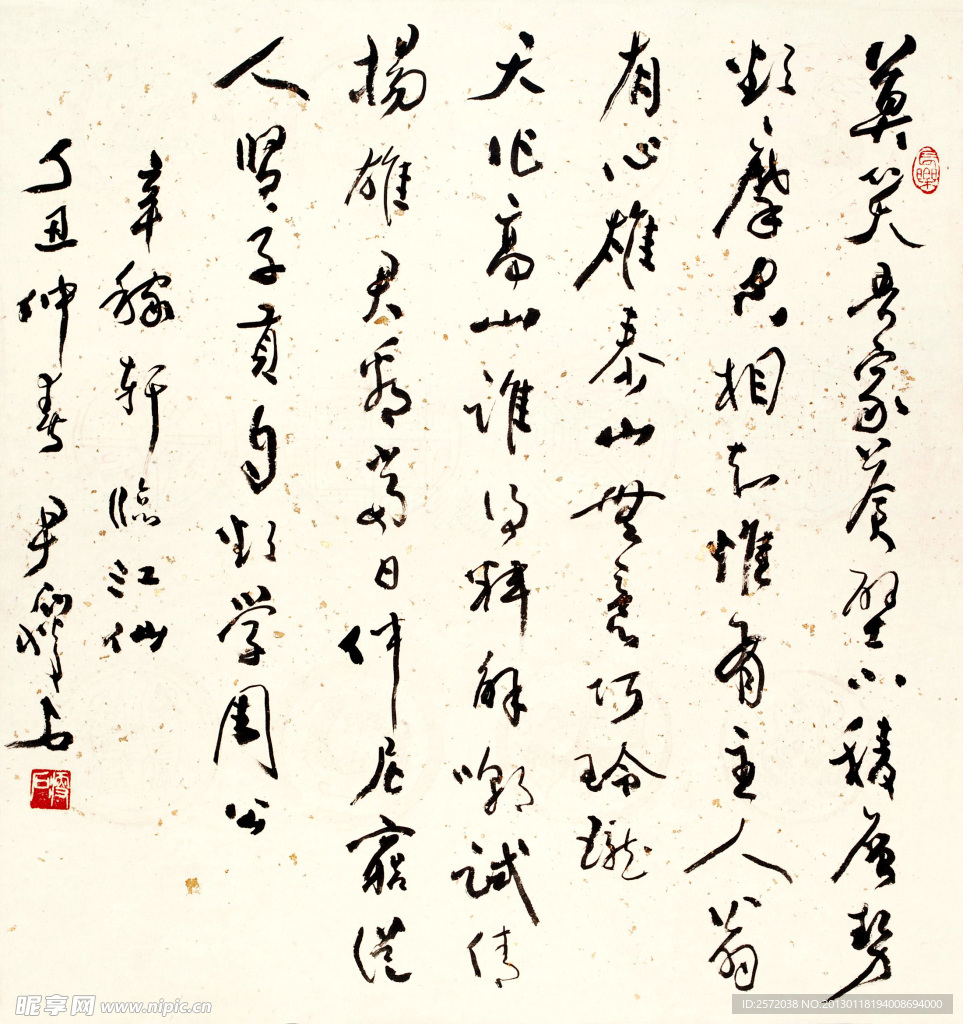 莫笑吾家蒼壁小稜層勢
欲摩空相知惟有主人翁
有心雄泰山無意巧玲瓏
天作高山誰得料解嘲試倩
揚雄君看當日仲尼窮從
人賢子貢自欲學周公
辛稼軒臨江仙
丁丑仲春尹瘦石
瘦石
昵享网 www.nipic.cn
ID:2572038 NO:20130118194008694000